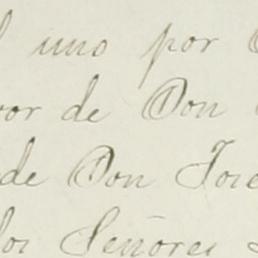 uno por
de Don
de Don José
los Señores